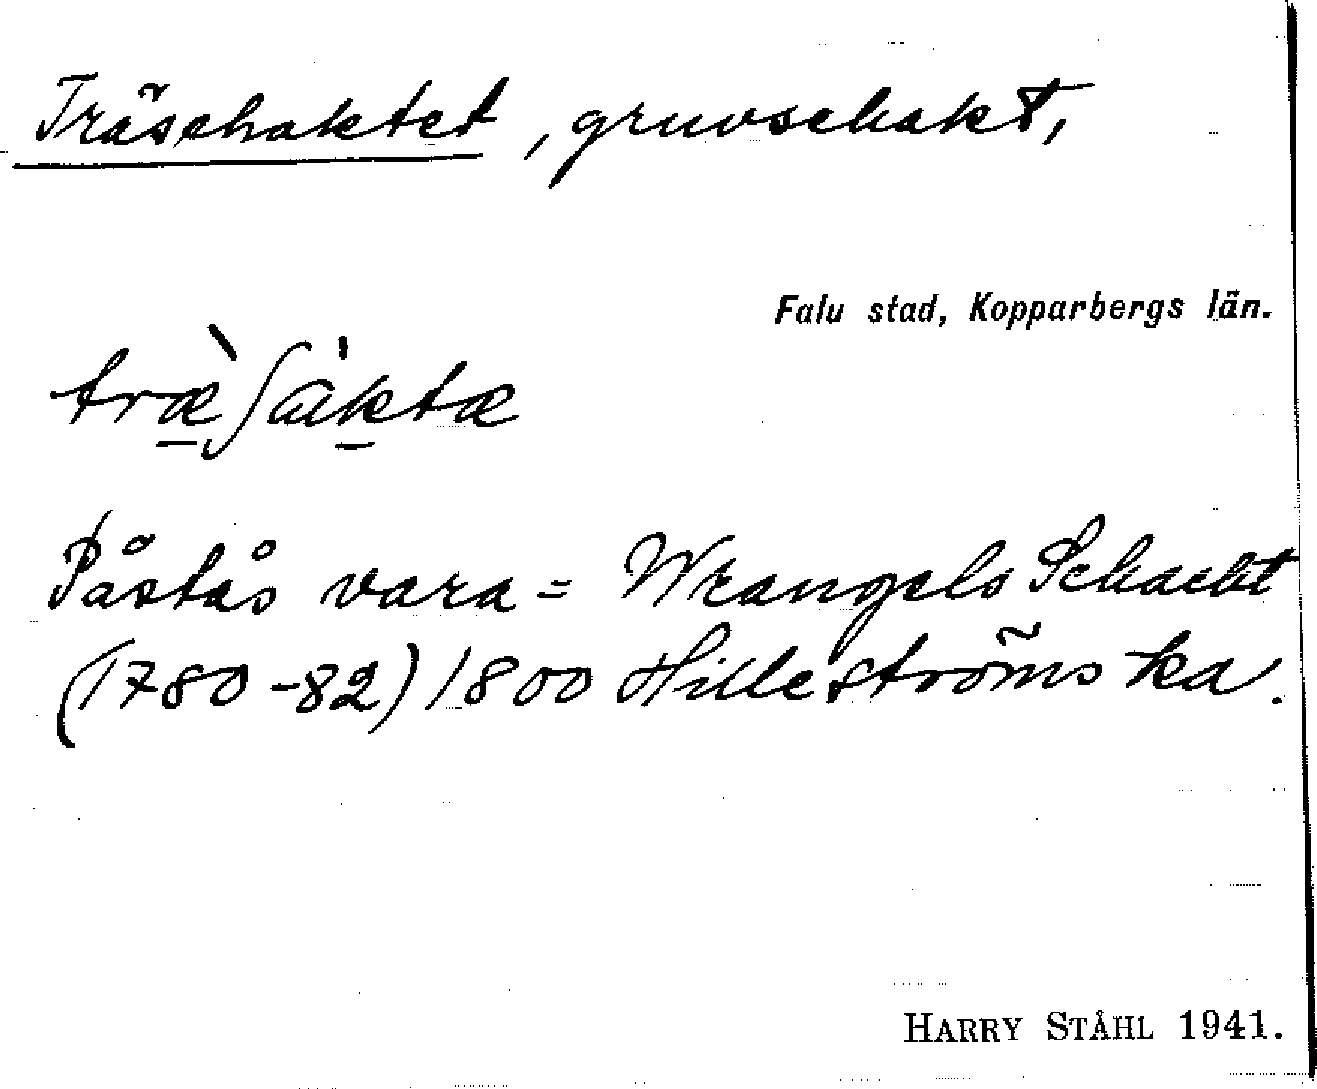 Träschaktet, gruvschakt,
Falu stad, Kopparbergs län.
træ̀ʃàktæ
Påstås vara = Wrangels Schacht
(1780-82) 1800 Hilleströmska.
HARRY STÅHL 1941.